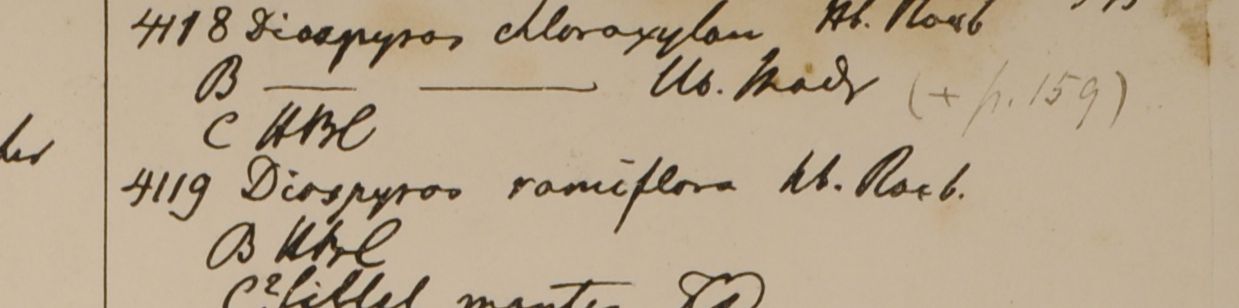 4118 Diospyros chloroxylon Hb. Roxb
B — — Hb. Madr (+ p. 159)
C HBC
4119 Diospyros ramiflora hb. Roxb.
B HBC
C?